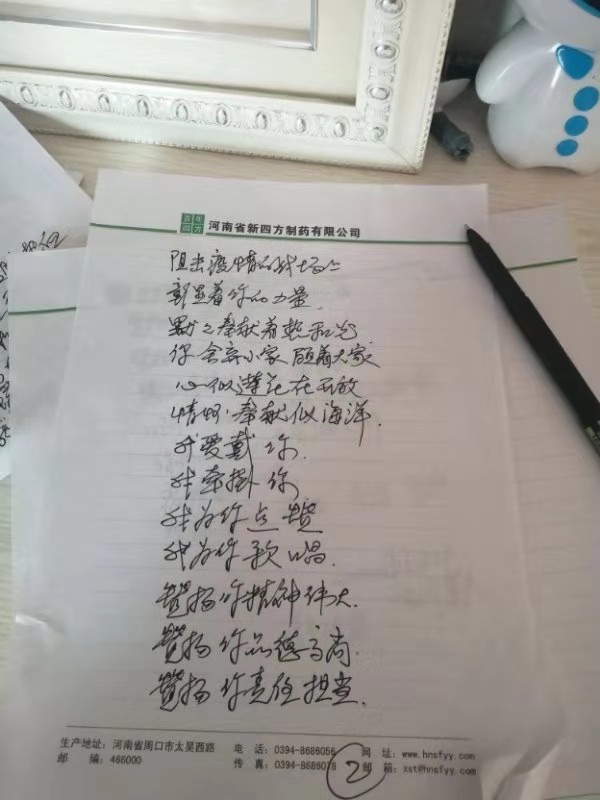 河南省新四方制药有限公司
阻击疫情的战场上
彰显着你的力量
默々奉献着热和光
你舍弃小家顾着大家
心似莲花在开放
情啊,奉献似海洋.
我爱戴你.
我牵掛你
我为你点赞
我为你歌唱.
赞扬你精神伟大.
赞扬你品德高尚.
赞扬你责任担当.
生产地址:河南省周口市太昊西路 电 话:0394-8686056 网 址:www.hnsfyy.com
邮 编:466000 传 真:0394-8686078 邮 箱:xst@hnsfyy.com
2